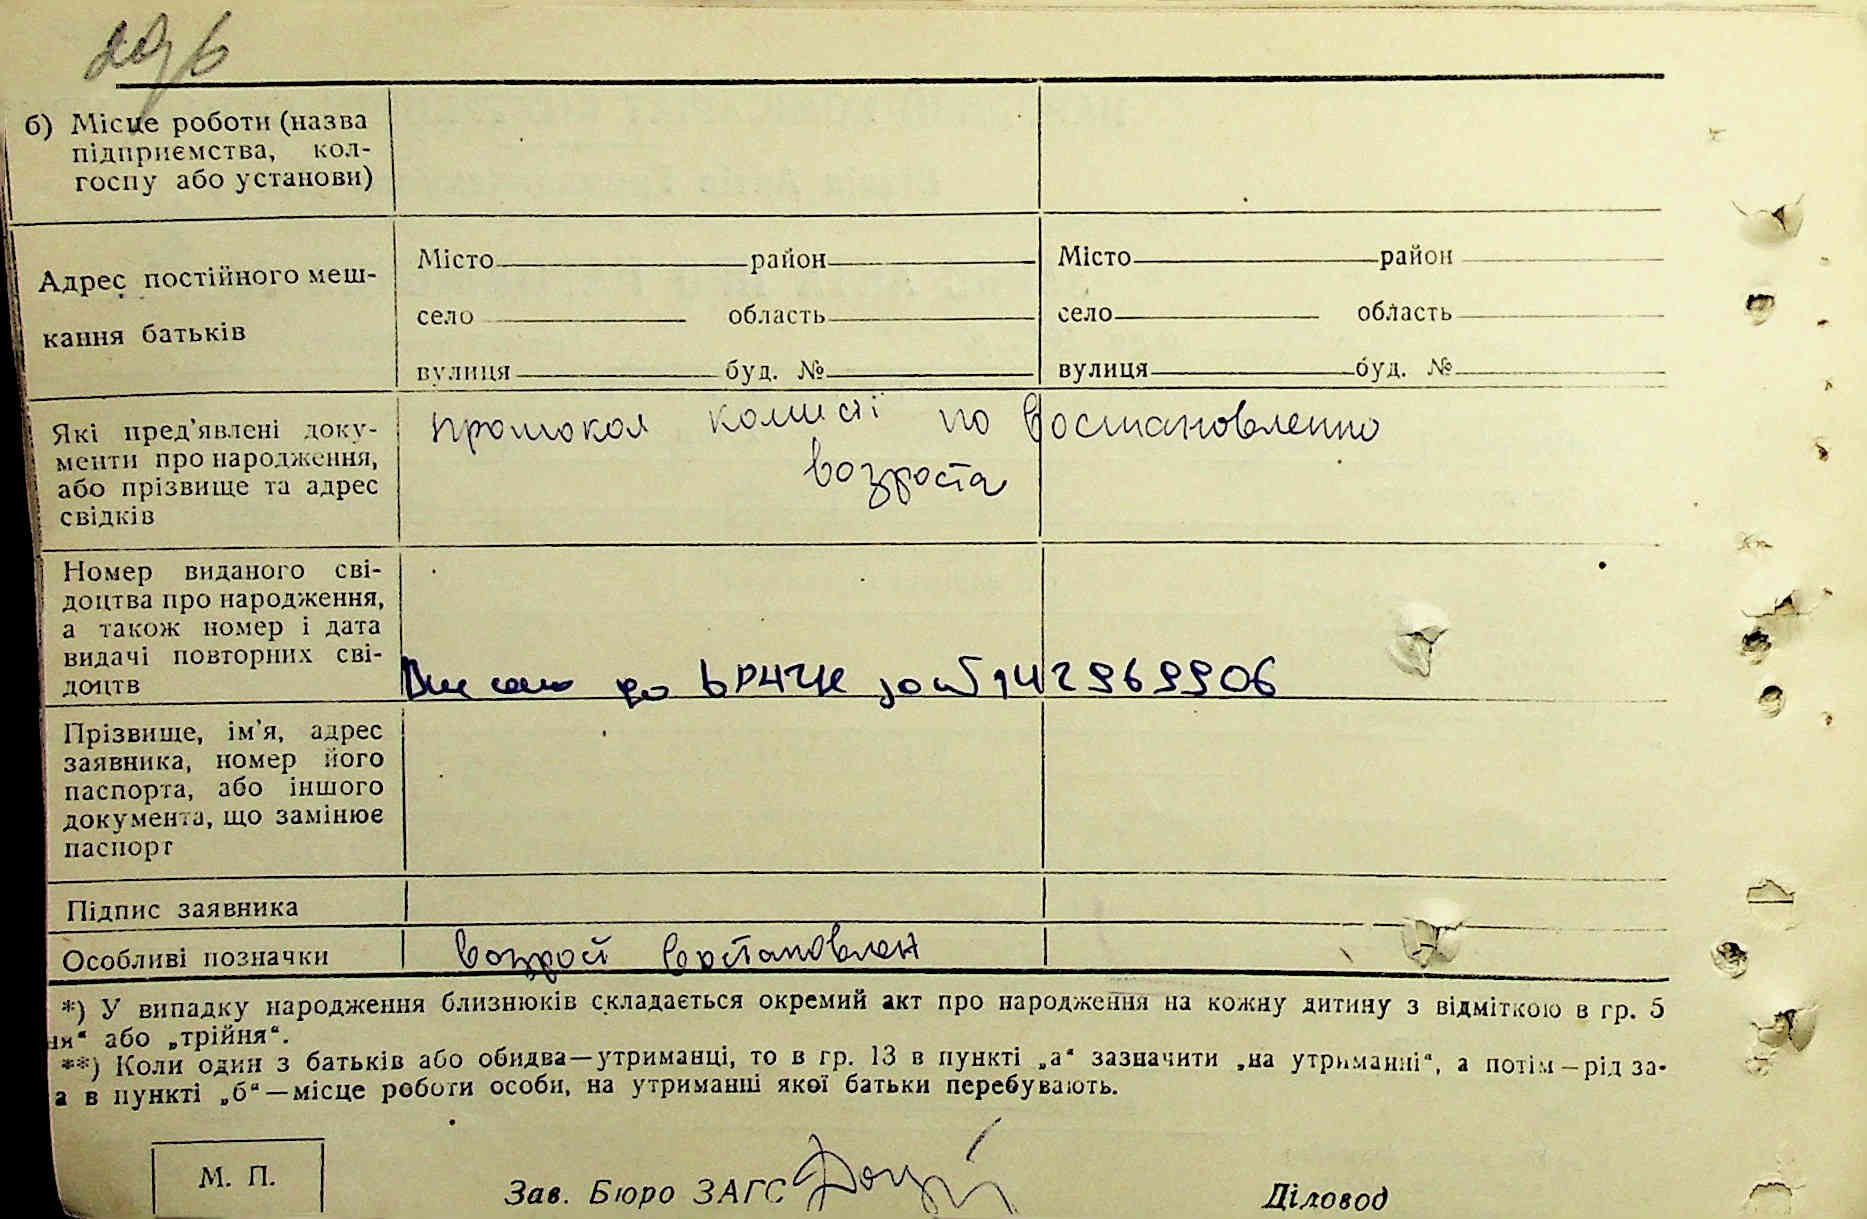 б) Місце роботи (назва
підприємства, кол-
госпу або установи)
Адрес постійного меш-
кання батьків
Місто район
село область
вулиця буд. №
Місто район
село область
вулиця буд. №
Які пред'явлені доку-
менти про народження,
або прізвище та адрес
свідків
протокол комисії по востановленню
возроста
Номер виданого сві-
доцтва про народження,
а також номер і дата
видачі повторних сві-
доцтв
Внесено до ДРАЦС за № 142969906
Прізвище, ім'я, адрес
заявника, номер його
паспорта, або іншого
документа, що замінює
паспорт
Підпис заявника
Особливі позначки
возрост востановлен
*) У випадку народження близнюків складається окремий акт про народження на кожну дитину з відміткою в гр. 5
ня“ або „трійня“.
**) Коли один з батьків або обидва—утриманці, то в гр. 13 в пункті „а“ зазначити „на утриманні“, а потім—рід за-
а в пункті „б“—місце роботи особи, на утриманні якої батьки перебувають.
М. П.
Зав. Бюро ЗАГС
Діловод